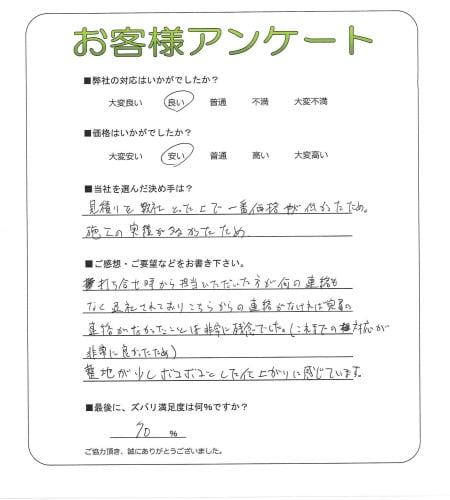 お客様アンケート
■弊社の対応はいかがでしたか？
大変良い 良い 普通 不満 大変不満
■価格はいかがでしたか？
大変安い 安い 普通 高い 大変高い
■当社を選んだ決め手は？
見積りを数社とった上で一番価格が低かったため。
施工の実績が多かったため
■ご感想・ご要望などをお書き下さい。
打ち合せ時から担当いただいた方が何の連絡も
なく退社されておりこちらからの連絡がなければ変更の
連絡がなかったことは非常に残念でした。(これまでの対応が
非常に良かったため)
墓地が少しボコボコとした仕上がりに感じています。
■最後に、ズバリ満足度は何％ですか？
70 %
ご協力頂き、誠にありがとうございました。